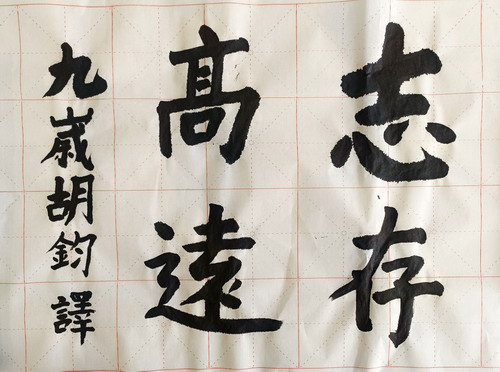 志存
高遠
九歲胡鈞譯